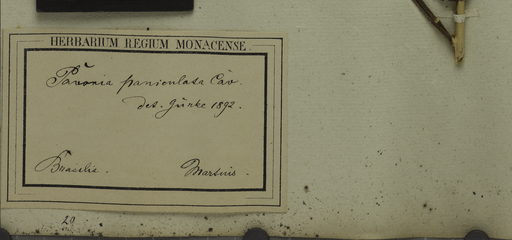 HERBARIUM REGIUM MONACENSE.
Pavonia paniculata Cav.
det. Gürke 1892.
Brasilia. Martius.
20